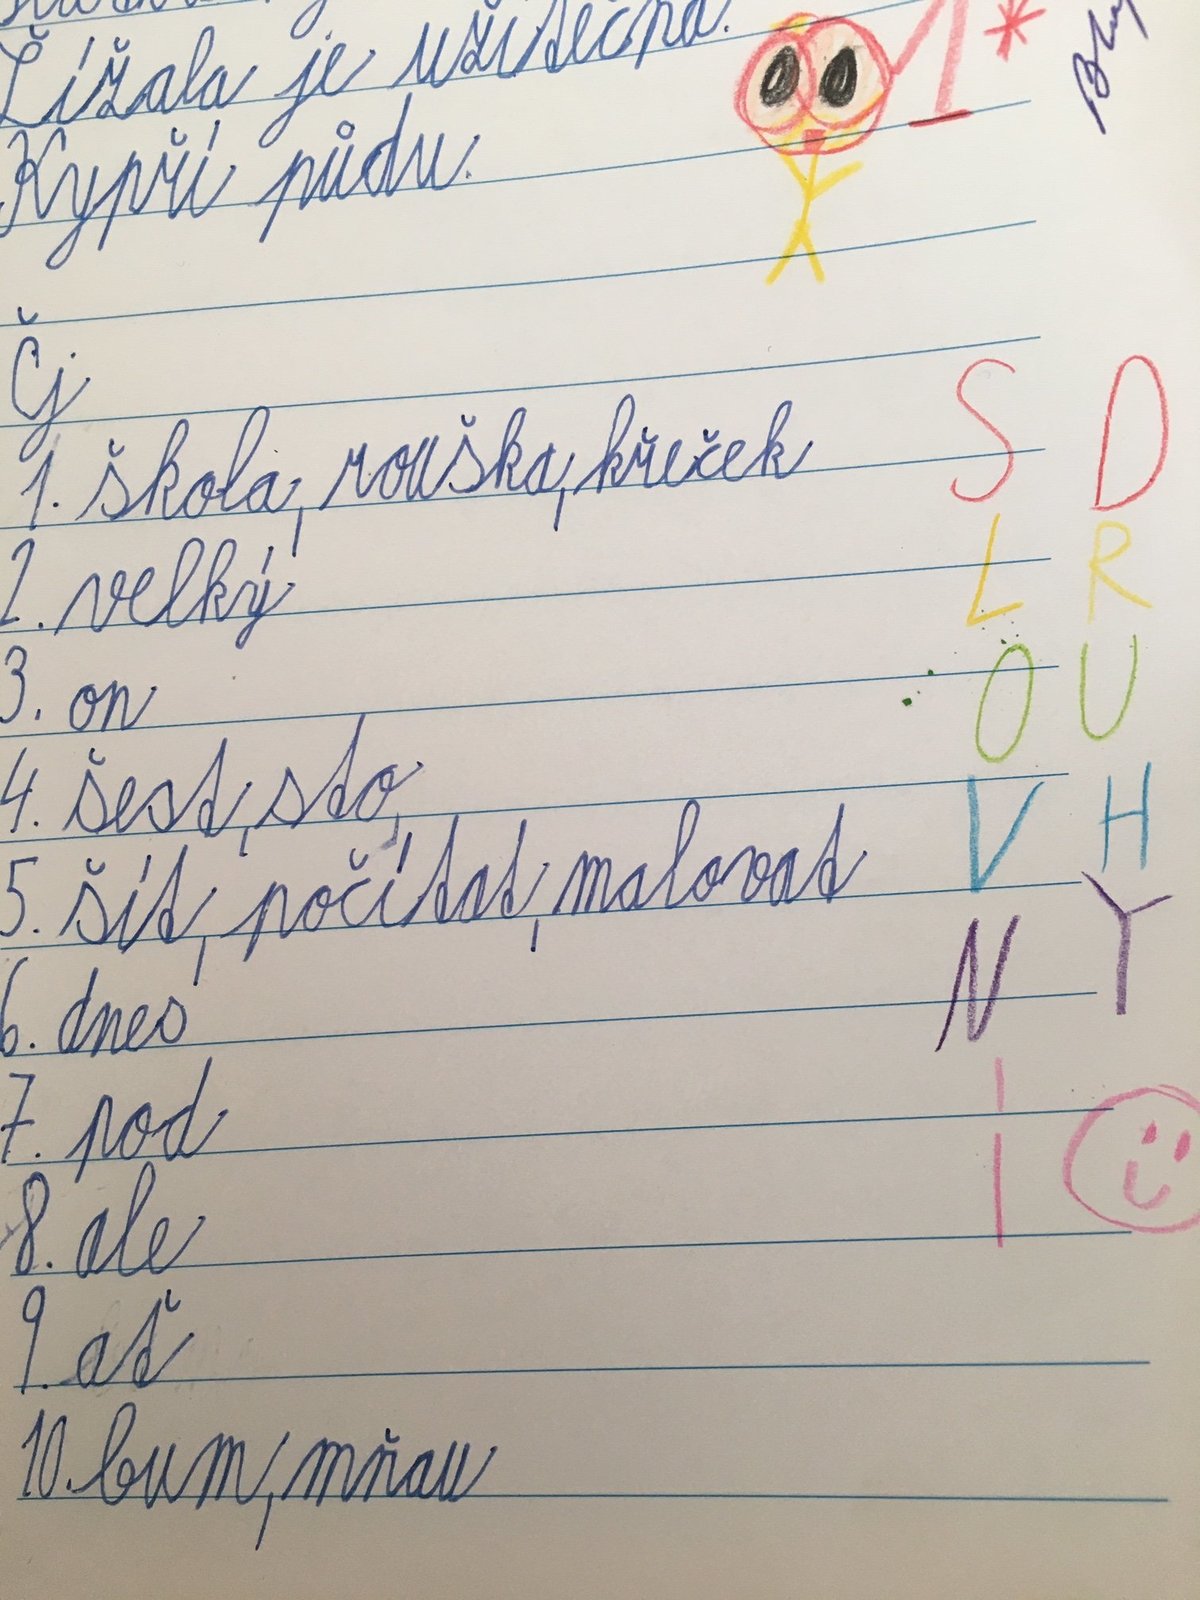 Žížala je užitečná.
Kypří půdu.
1*
Čj
1. škola, rouška, křeček
2. velký
3. on
4. šest, sto,
5. šít, počítat, malovat
6. dnes
7. pod
8. ale
9. ať
10. bum, mňau
SLOVNÍ
DRUHY